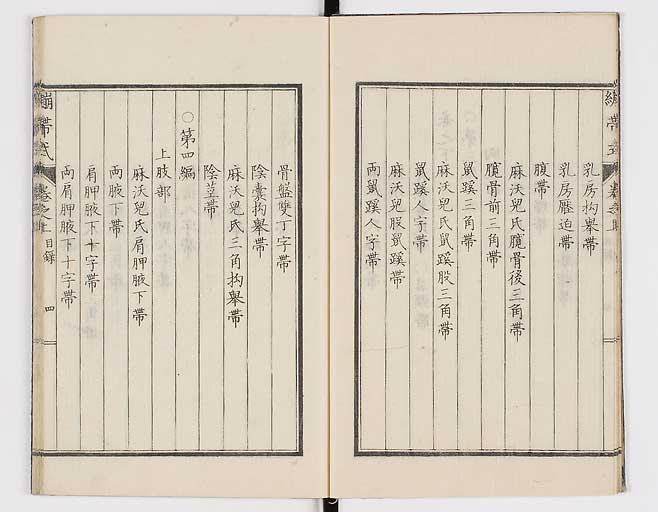 乳房抅擧帶
乳房壓迫帶
腹帶
麻沃兒氏臗骨後三角帶
臗骨前三角帶
鼠蹊三角帶
麻沃兒氏鼠蹊股三角帶
鼠蹊人字帶
麻沃兒股鼠蹊帶
兩鼠蹊人字帶
骨盤雙丁字帶
陰囊抅擧帶
麻沃兒氏三角抅擧帶
陰莖帶
○第四編
上肢部
麻沃兒氏肩胛腋下帶
兩腋下帶
肩胛腋下十字帶
兩肩胛腋下十字帶
繃帶式 卷之上 目録 四